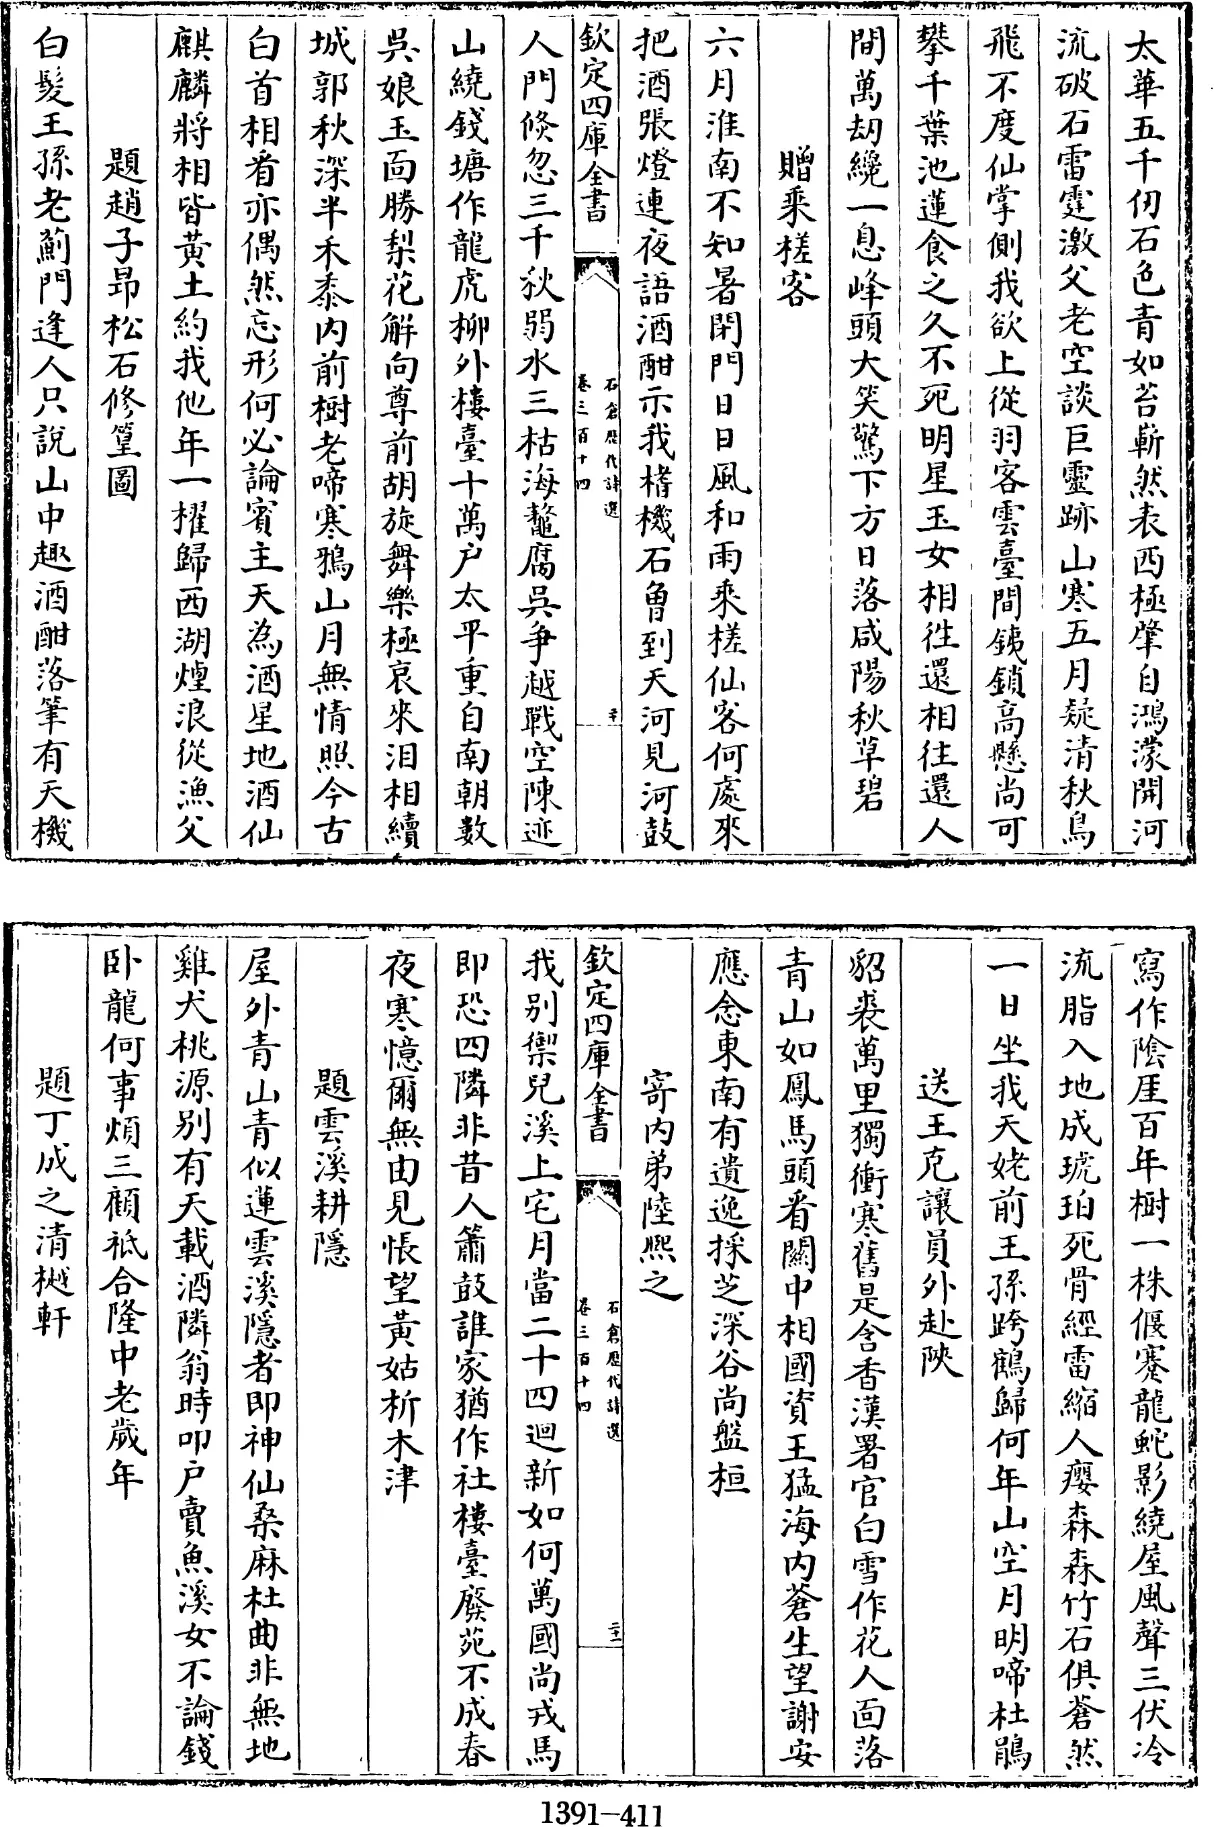 太華五千仞石色青如苔嶄然表西極肇自鴻濛開河
流破石雷霆激父老空談巨靈跡山寒五月疑清秋鳥
飛不度仙掌側我欲上從羽客雲臺間銕鎖高懸尚可
攀千葉池蓮食之久不死明星玉女相徃還相往還人
間萬刼纔一息峰頭大笑驚下方日落咸陽秋草碧
贈乘槎客
六月淮南不知暑閉門日日風和雨乘槎仙客何處來
把酒張燈連夜語酒酣示我榰機石曾到天河見河鼓
欽定四庫全書
石倉歷代詩選
卷三百十四
二十
人門倐忽三千秋弱水三枯海鼇腐吳争越戰空陳迹
山繞錢塘作龍虎柳外樓臺十萬户太平重自南朝數
吳娘玉面勝梨花解向尊前胡旋舞樂極哀來泪相續
城郭秋深半禾黍内前樹老啼寒鴉山月無情照今古
白首相看亦偶然忘形何必論賓主天為酒星地酒仙
麒麟將相皆黄土約我他年一櫂歸西湖煙浪從漁父
題趙子昻松石修篁圖
白髮王孫老薊門逢人只說山中趣酒酣落筆有天機
寫作陰厓百年樹一株偃蹇龍蛇影繞屋風聲三伏冷
流脂入地成琥珀死骨經雷縮人癭森森竹石俱蒼然
一日坐我天姥前王孫跨鶴歸何年山空月明啼杜鵑
送王克讓員外赴陝
貂裘萬里獨衝寒舊是含香漢署官白雪作花人面落
青山如鳳馬頭看關中相國資王猛海内蒼生望謝安
應念東南有遺逸採芝深谷尚盤桓
寄内弟陸熙之
欽定四庫全書
石倉歷代詩選
卷三百十四
二十一
我别禦兒溪上宅月當二十四迴新如何萬國尚戎馬
即恐四隣非昔人簫鼓誰家猶作社樓臺廢苑不成春
夜寒憶爾無由見悵望黄姑析木津
題雲溪耕隱
屋外青山青似蓮雲溪隱者即神仙桑麻杜曲非無地
雞犬桃源别有天載酒隣翁時叩户賣魚溪女不論錢
卧龍何事煩三顧祗合隆中老歲年
題丁成之清樾軒
1391-411